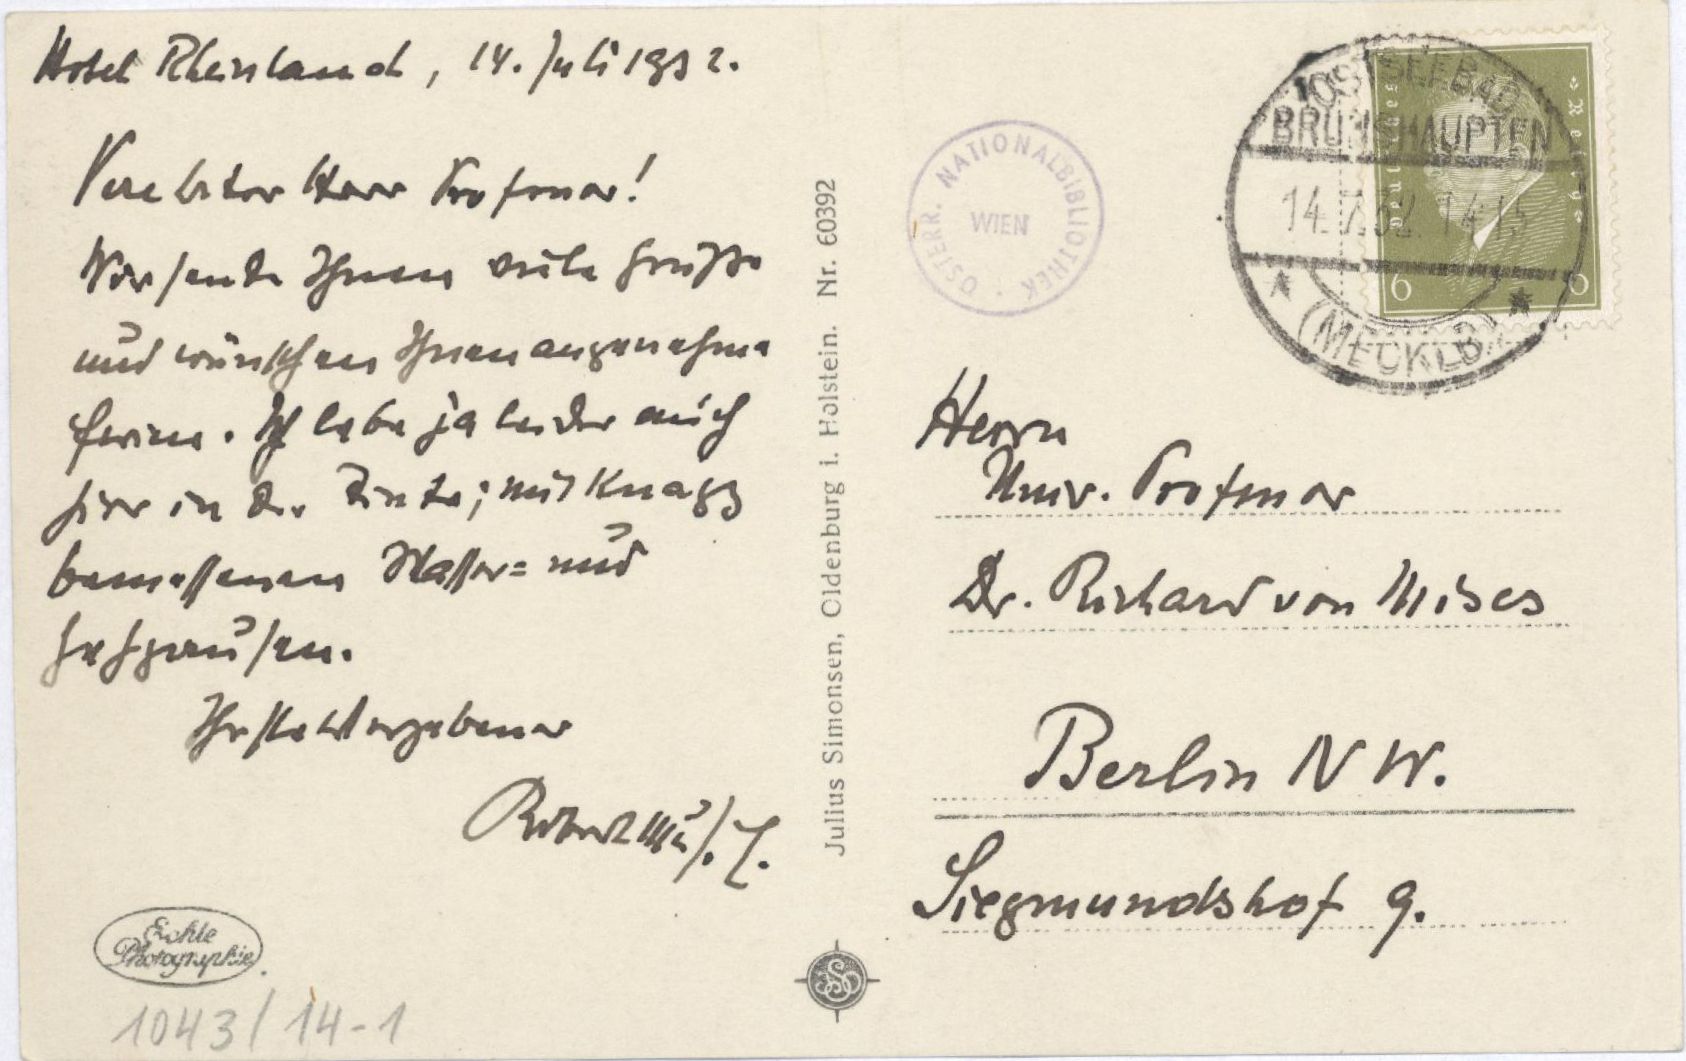 Hotel Rheinland, 14. Juli 1932.
Verehrter Herr Professor!
Wir senden Ihnen viele Grüße
und wünschen Ihnen angenehme
Ferien. Ich lebe ja leider auch
hier in der Tinte; mit knapp
bemessenen Wasser= und
Ihr sehr ergebener
Robert Musil.
Echte
Photographie
1043/14-1
Julius Simonsen, Oldenburg i. Holstein. Nr. 60392
ÖSTERR. NATIONALBIBLIOTHEK
WIEN
OSTSEEBAD
BRUNSHAUPTEN
14.7.32. 14-15
(MECKLB)
Deutsches Reich
6 6
Herrn
Univ. Professor
Dr. Richard von Mises
Berlin NW.
Siegmundshof 9.